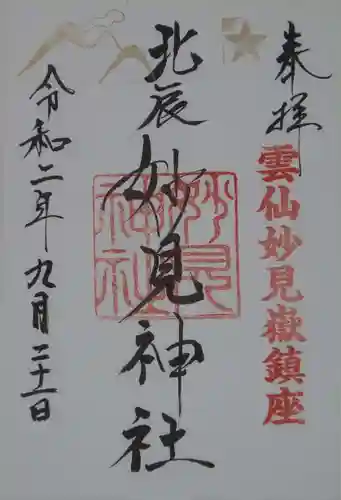 奉拝
雲仙妙見嶽鎮座
北辰妙見神社
妙見神社
令和二年九月二十一日